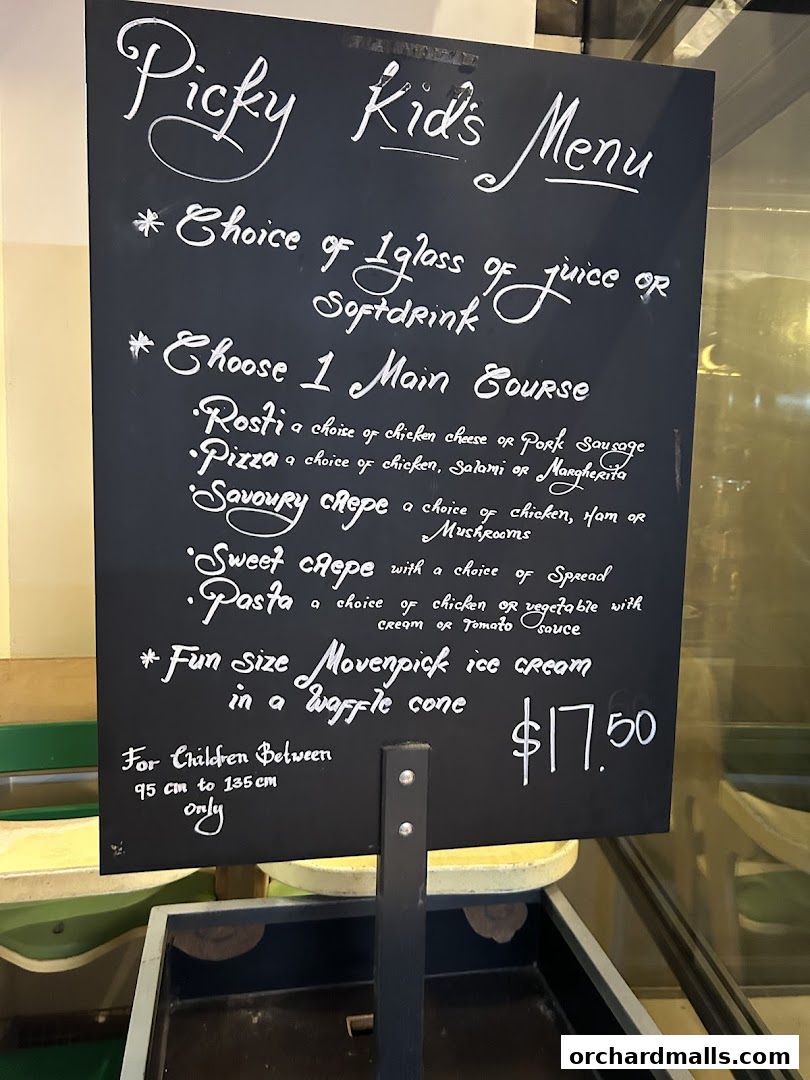 Picky Kid's Menu
* Choice of 1 glass of juice OR
Softdrink
* Choose 1 Main Course
· Rosti a choise of chicken cheese or Pork Sausage
· Pizza a choice of chicken, Salami or Margherita
· Savoury crepe a choice of chicken, Ham or
Mushrooms
· Sweet crepe with a choice of Spread
· Pasta a choice of chicken or vegetable with
cream or Tomato sauce
* Fun Size Movenpick ice cream
in a waffle cone
$17.50
For Children Between
95 cm to 135 cm
Only
orchardmalls.com